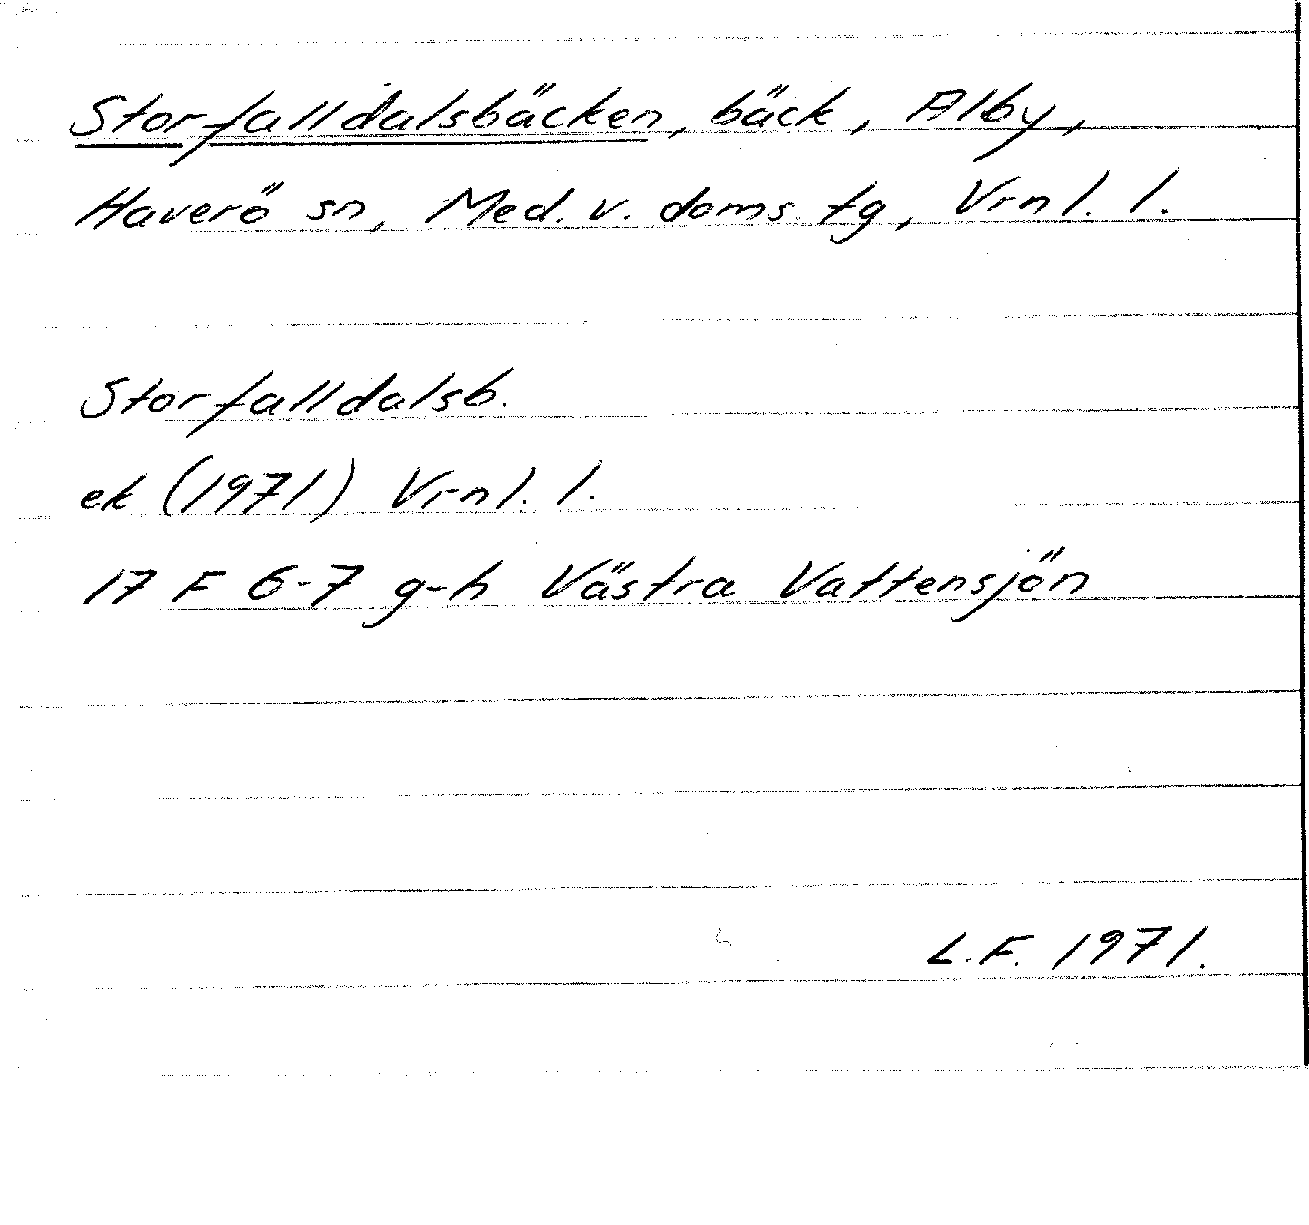 Storfalldalsbäcken, bäck, Alby,
Haverö sn, Med. v. doms. tg, Vrnl. l.
Storfalldalsb.
ek (1971) Vrnl. l.
17 F 6-7 g-h Västra Vattensjön
L.F. 1971.